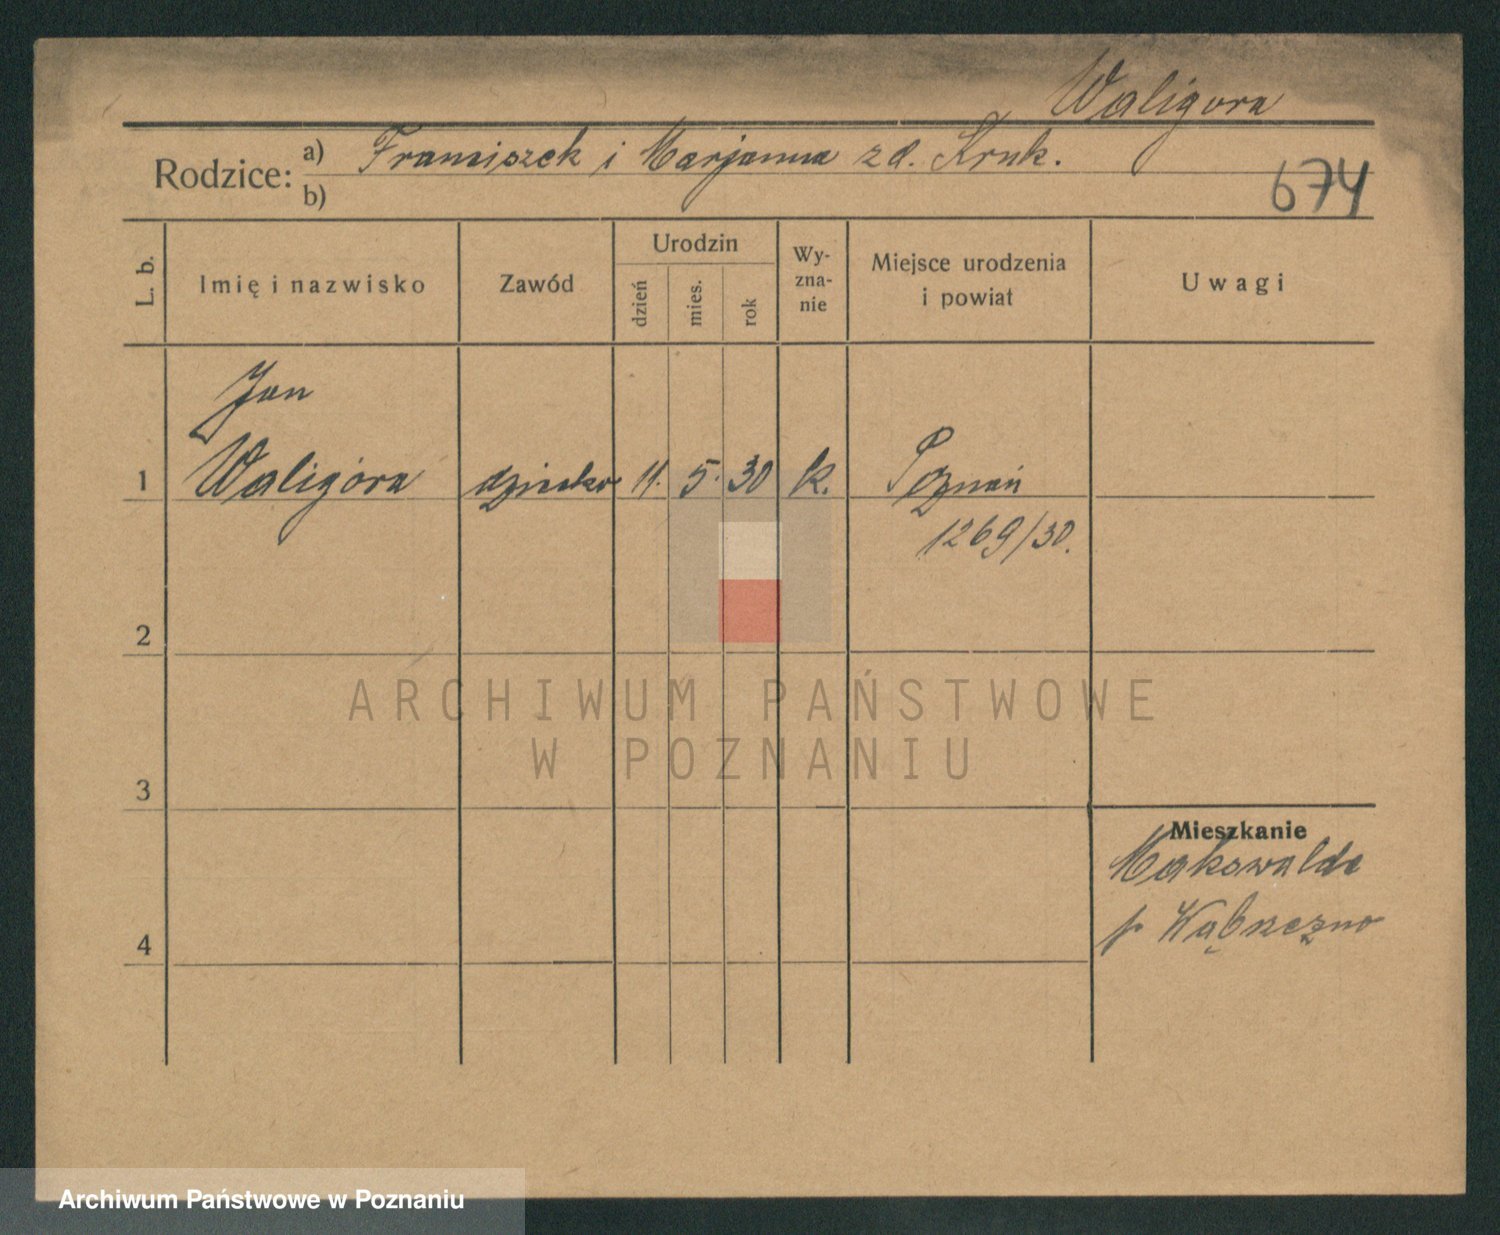 Waligóra
Rodzice: a) Franciszek i Marjanna zd. Kruk.
b)
674
L. b.
Imię i nazwisko
Zawód
Urodzin
dzień
mies.
rok
Wy-
zna-
nie
Miejsce urodzenia
i powiat
Uwagi
Jan
1 Waligóra dziecko 11. 5. 30 k. Poznań
1269/30.
2
ARCHIWUM PAŃSTWOWE
W POZNANIU
3
Mieszkanie
Makowalde
4 p Wąbrzeźno
Archiwum Państwowe w Poznaniu